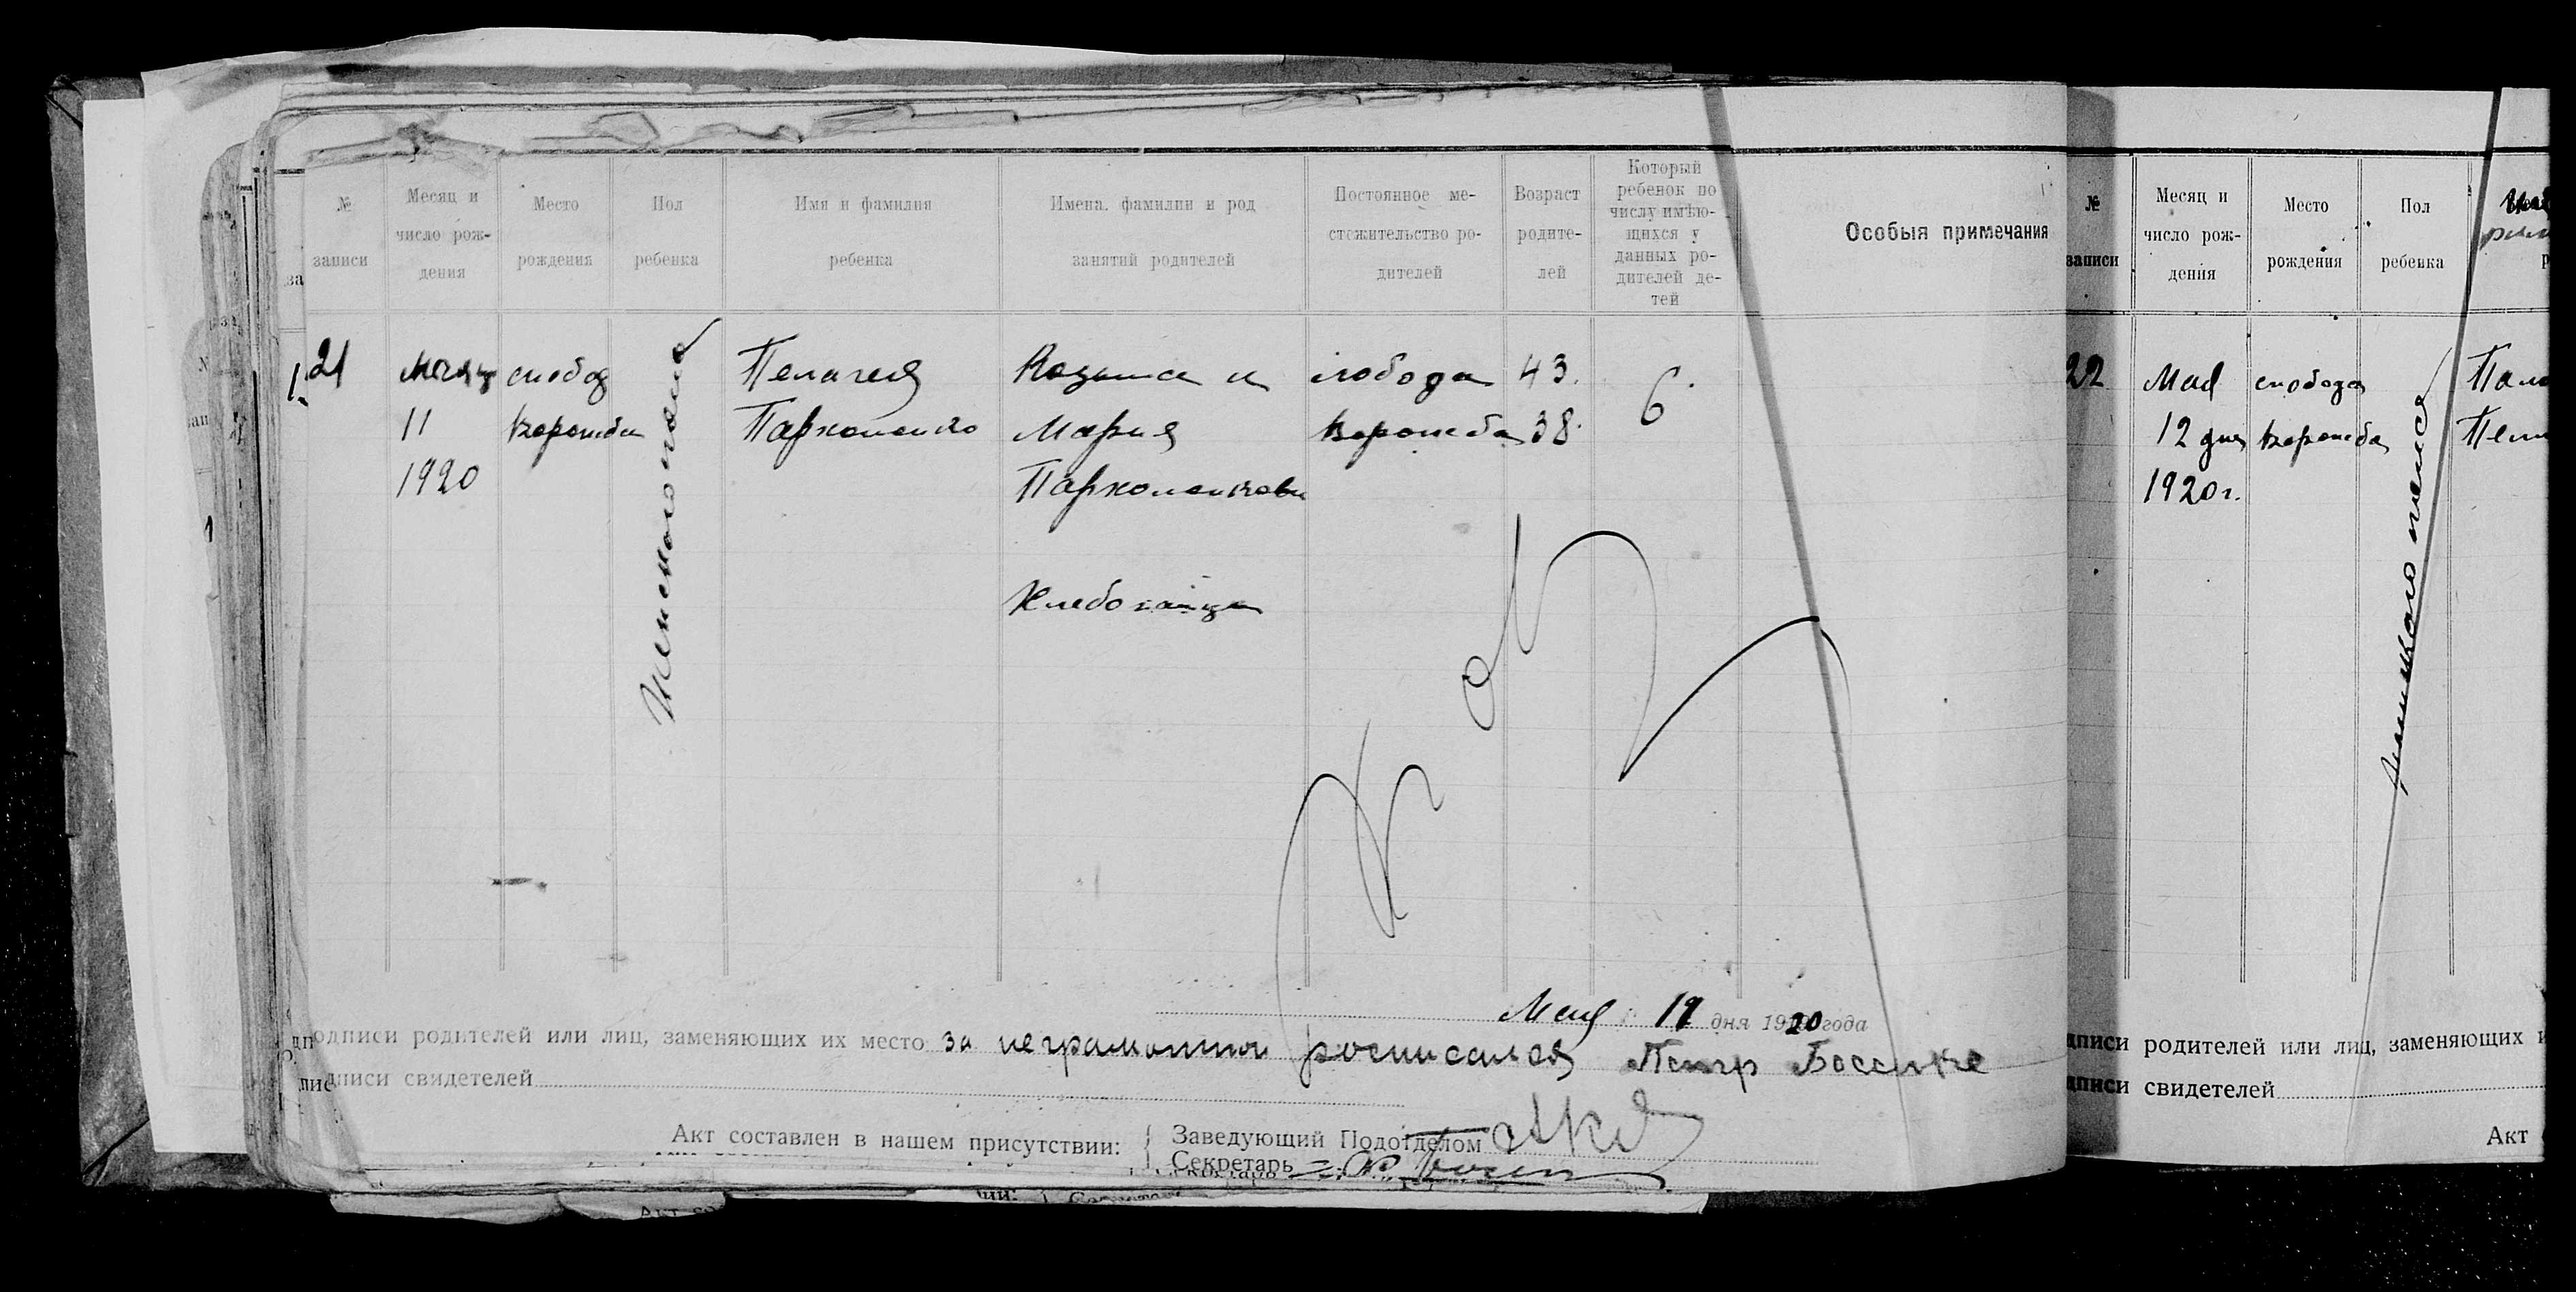 № записи
Месяц и число рождения
Место рождения
Пол ребенка
Имя и фамилия ребенка
Имена, фамилии и род занятий родителей
Постоянное местожительство родителей
Возраст родителей
Который ребенок по числу имѣющихся у данных родителей детей
Особыя примечания
21
11
1920
слобод
Ворожба
Женского пола
Пелагея
Пархоменко
Козьма и
Мария
Пархоменкови
слобода
Ворожба
43.
38.
6.
Мая 19 дня 1920 года
одписи родителей или лиц, заменяющих их место за неграмотной росписался Петр
дписи свидетелей
Акт составлен в нашем присутствии:
Заведующий Подотделом
Секретарь
№ записи
Месяц и число рождения
Место рождения
Пол ребенка
22
Мая
12 дня
1920 г.
слобода
Ворожба
дписи родителей или лиц, заменяющих и
дписи свидетелей
Акт